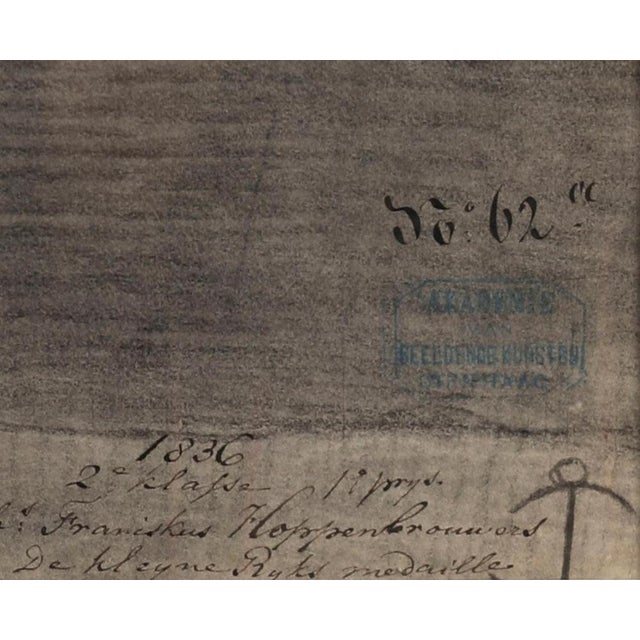 No. 62 a
AKADEMIE
VAN
BEELDENDE KUNSTEN
1836
2e klasse 1e prys.
s. Franiskus Hoppenbrouwers
De kleyne Ryks medaille